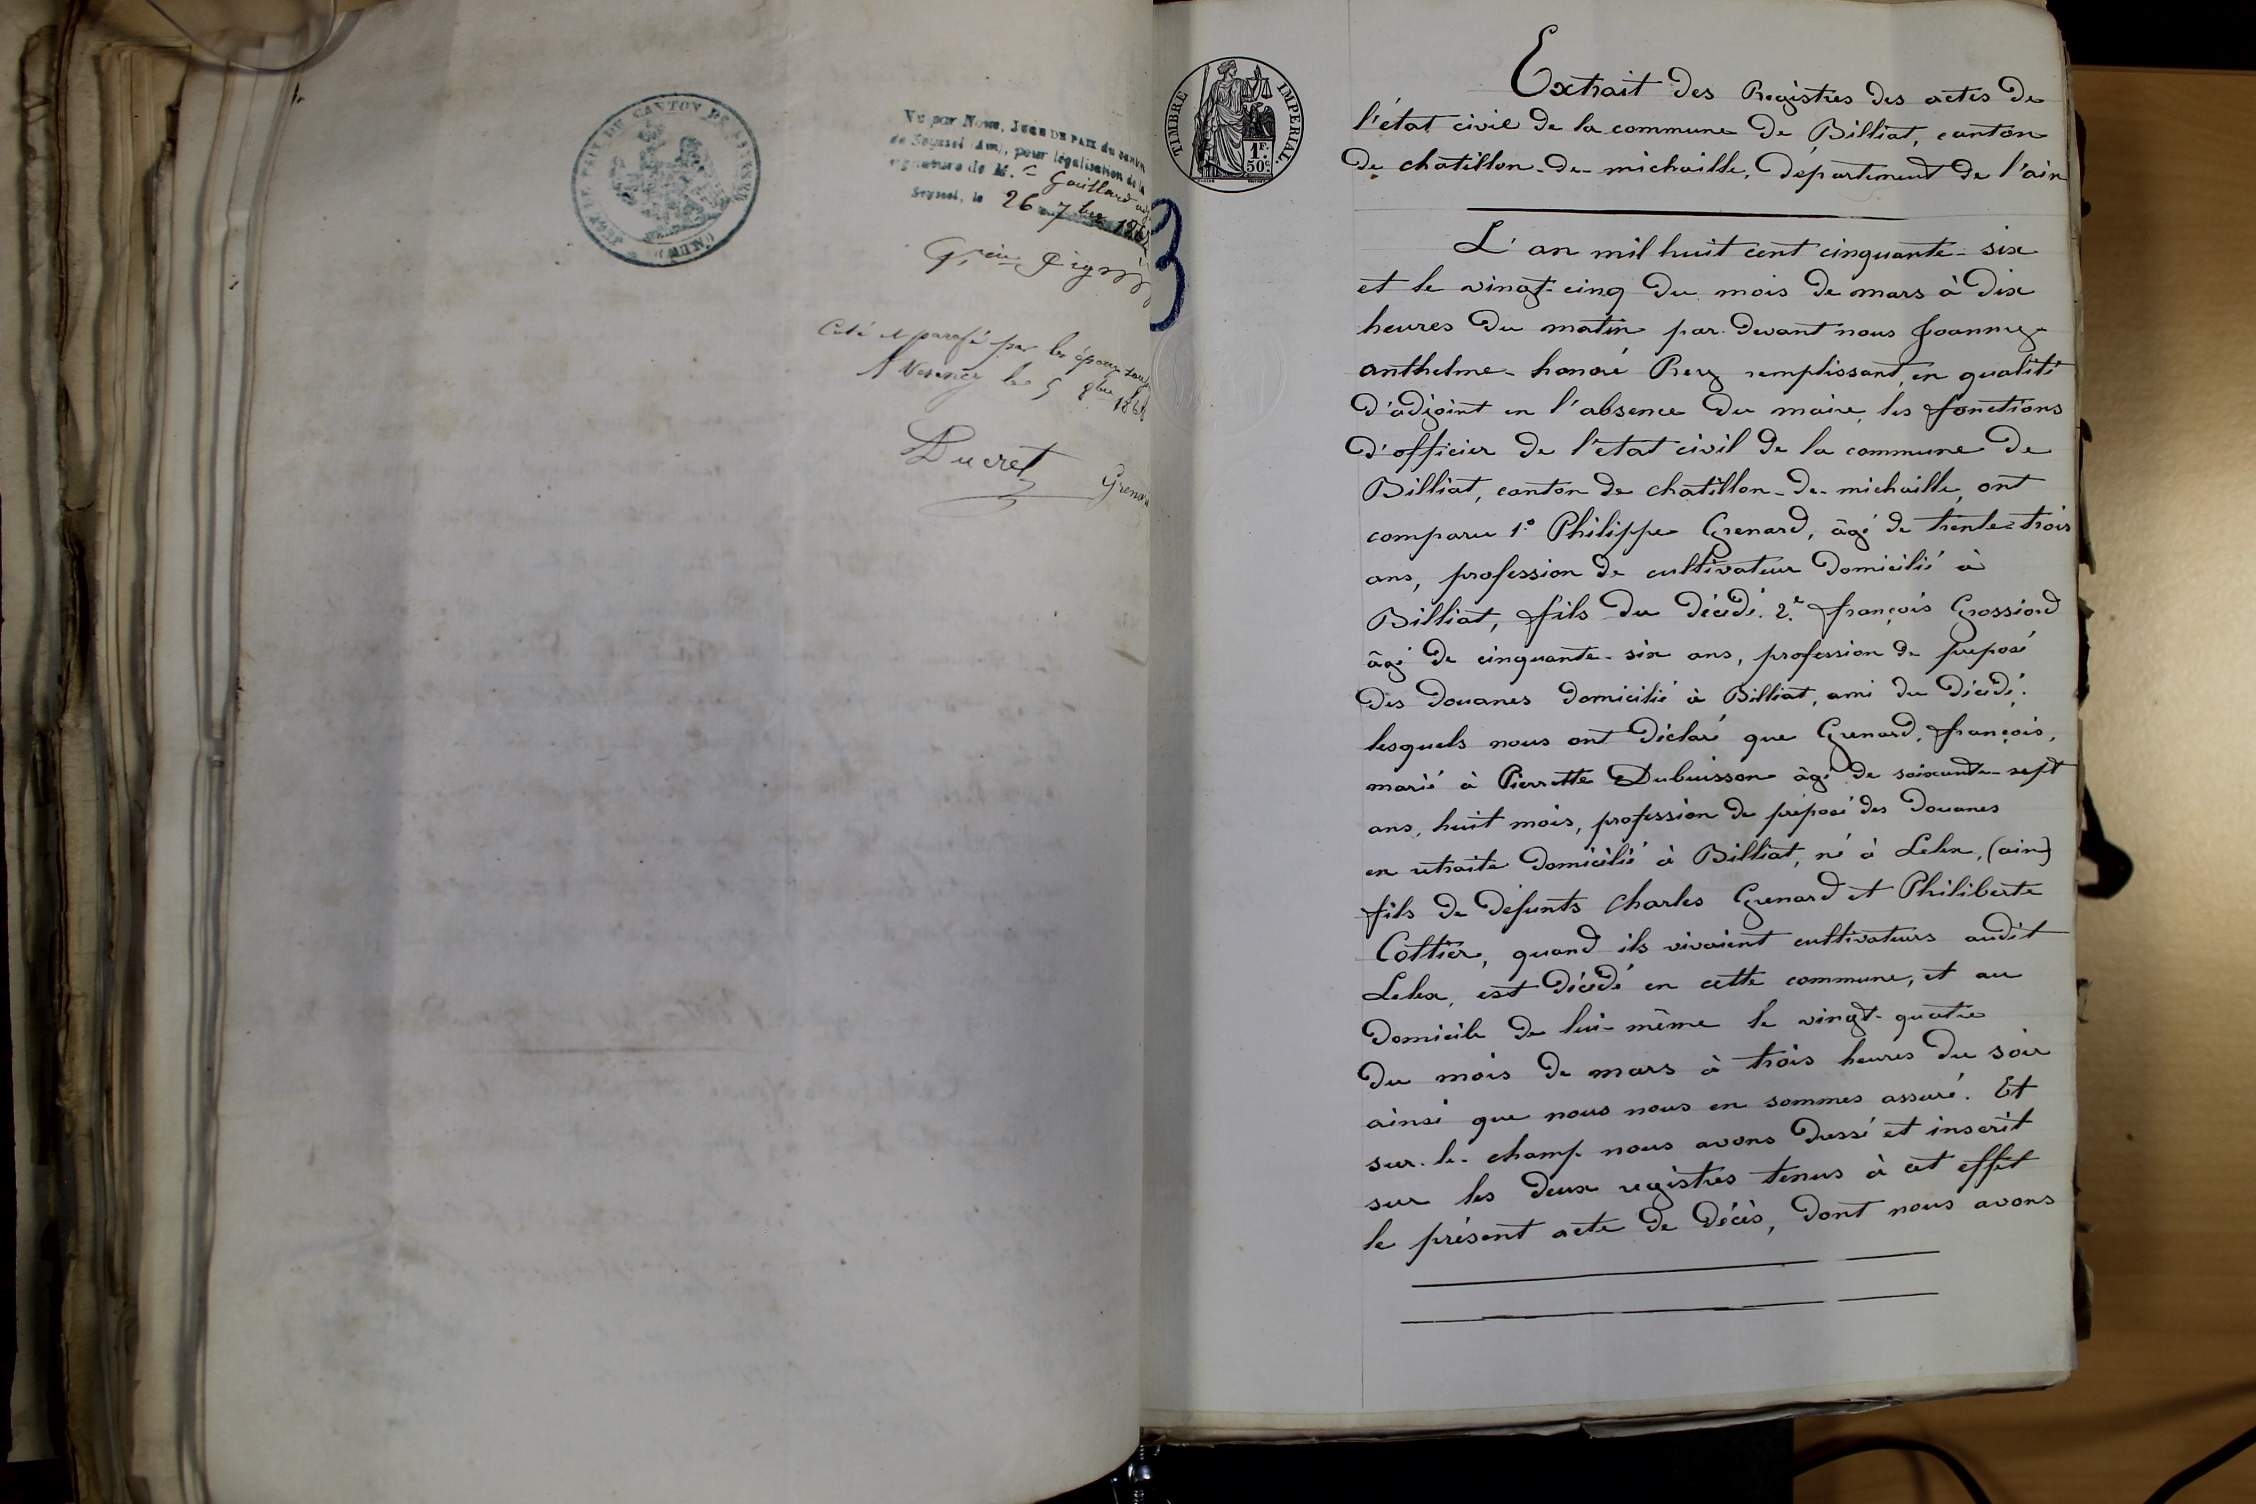 JUGE DE PAIX DU CANTON DE SEYSSEL
Vu par Nous, JUGE DE PAIX du canton
de Seyssel (Ain), pour légalisation de la
signature de M. Gaillard adj
Seyssel, le 26 7bre
Coté et parafé par les époux
A Vesancy le 5 9bre
Ducret Grenard
3
TIMBRE IMPERIAL.
1F.
50c.
Extrait des Registres des actes de
l'état civil de la commune de Billiat, canton
de chatillon-de-michaille, département de l'ain
L'an mil huit cent cinquante-six
et le vingt-cinq du mois de mars à dix
heures du matin par devant nous Joanny-
anthelme-honoré Rey remplissant, en qualité
d'adjoint en l'absence du maire, les fonctions
d'officier de l'état civil de la commune de
Billiat, canton de chatillon-de-michaille, ont
comparu 1° Philippe Grenard, âgé de trente-trois
ans, profession de cultivateur domicilié à
Billiat, fils du décédé. 2.e françois Grossiord
âgé de cinquante-six ans, profession de préposé
des douanes domicilié à Billiat, ami du décédé.
lesquels nous ont déclaré que Grenard, françois,
marié à Pierrette Dubuisson âgé de soixante-sept
ans, huit mois, profession de préposé des douanes
en retraite domicilié à Billiat, né à Lelex, (ain)
fils de défunts Charles Grenard et Philiberte
Cottier, quand ils vivaient cultivateurs audit
Lelex, est décédé en cette commune, et au
domicile de lui-même le vingt-quatre
du mois de mars à trois heures du soir
ainsi que nous nous en sommes assuré. Et
sur-le-champ nous avons dressé et inscrit
sur les deux registres tenus à cet effet
le présent acte de décès, dont nous avons